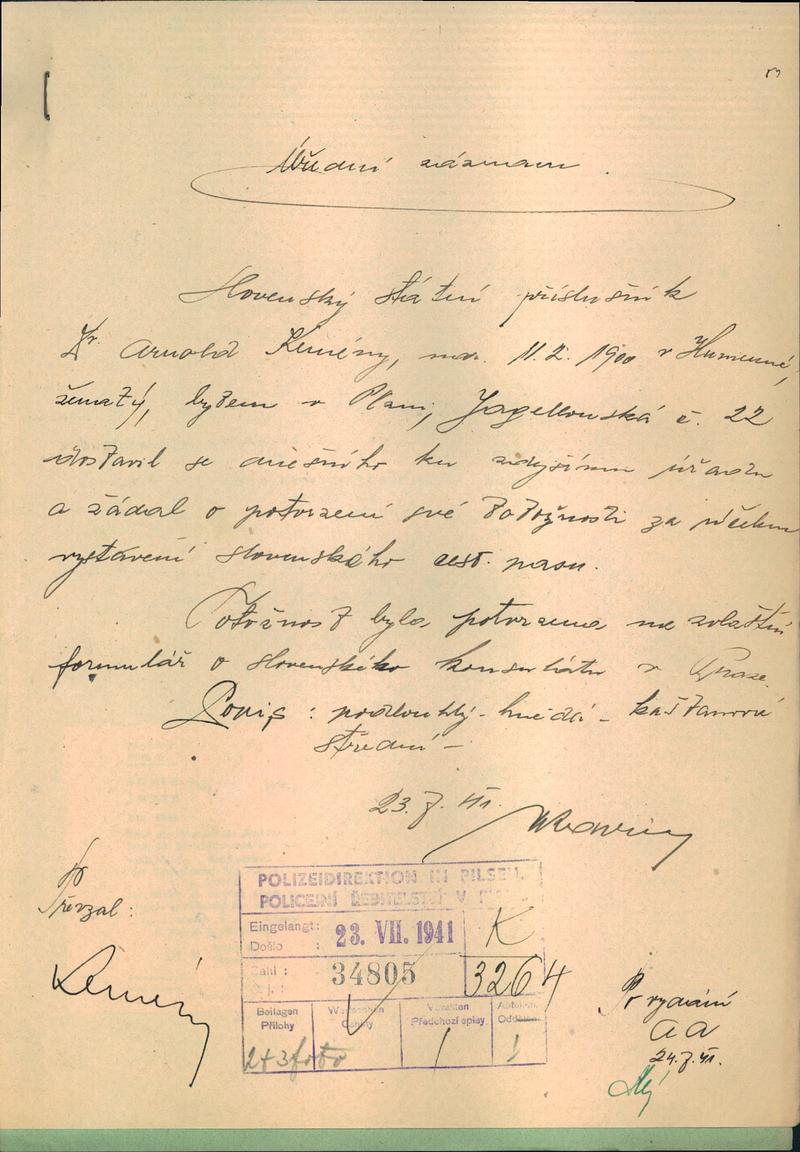 Úřední záznam.
Slovenský státní příslušník
Dr. Arnold Kemény, nar. 11.2. 1900 v Humenné,
ženatý, bytem v Plzni, Jagellonská č. 22
dostavil se dnešního ku zdejšímu úřadu
a žádal o potvrzení své totožnosti za účelem
vystavení slovenského cest. pasu.
Totožnost byla potvrzena na zvláštní
formulář o slovenského konsulátu v Praze.
Popis: podlouhlý - hnědá - kaštanové
střední -
23.7.41.
Převzal:
Kemény
POLIZEIDIREKTION IN PILSEN.
POLICEJNÍ ŘEDITELSTVÍ V
Eingelangt:
Došlo :
23. VII. 1941
K
Zahl :
Č. j. :
34805
3264
Beilagen
Přílohy
Cenniny
Vorakten
Předchozí spisy
2+3 foto
Po vydání
a a
24.7.41.